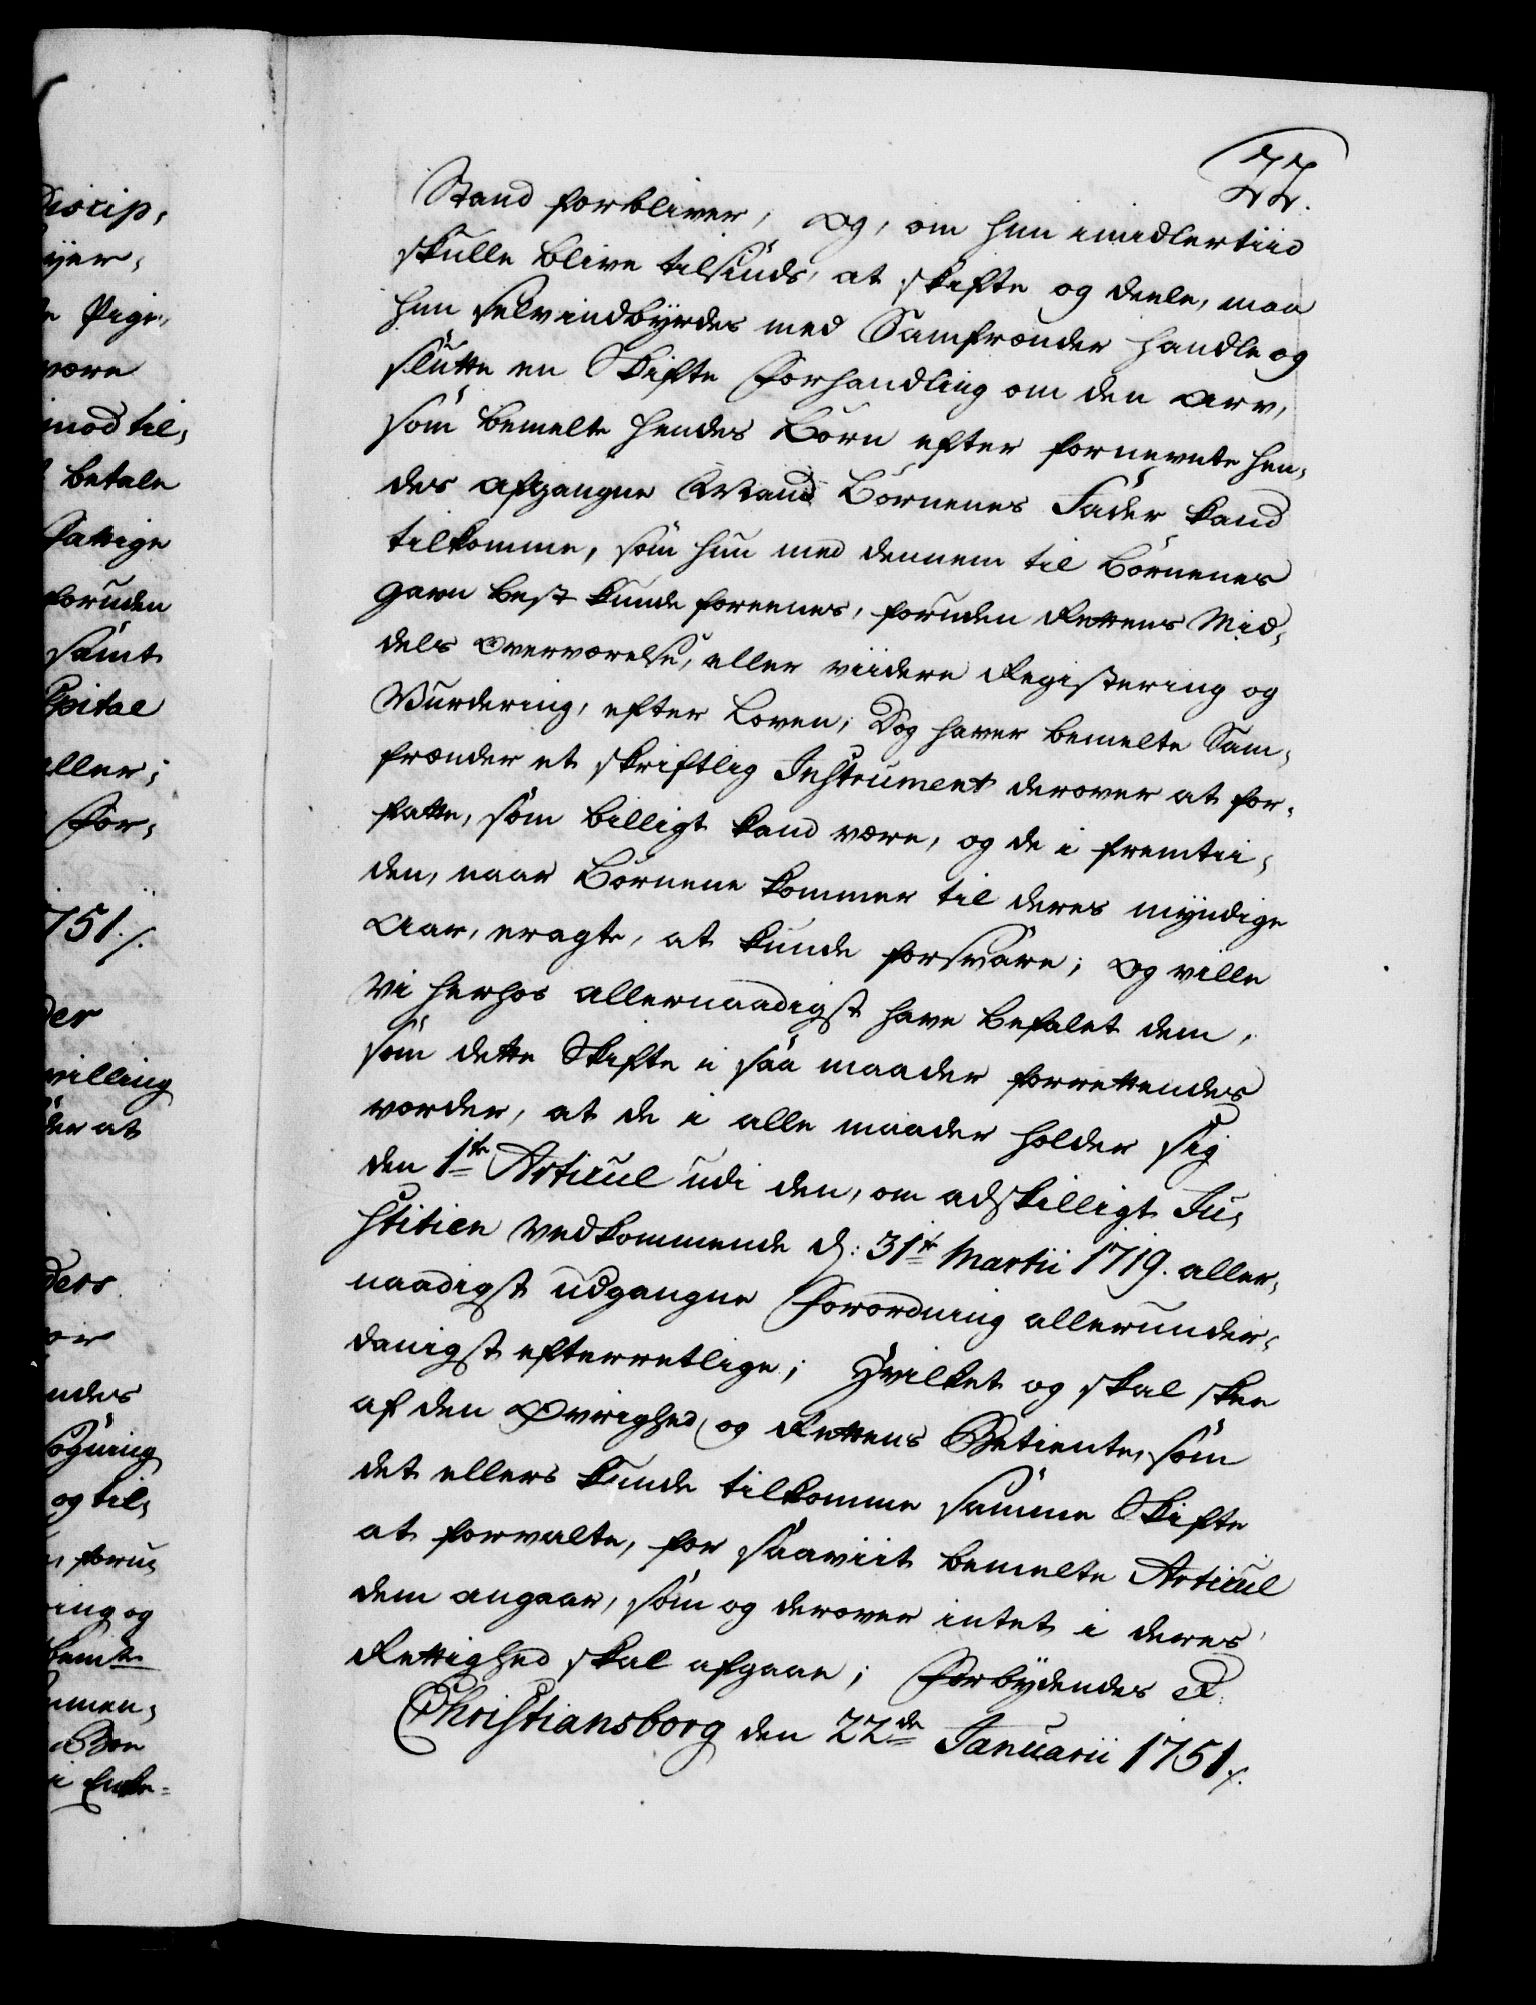 22.
Stand forbliver, Og, om hun imidlertiid
skulle blive tilsinds, at skifte og deele, maa
hun selvindbyrdes med Samfrender handle og
slutte en Skifte Forhandling om den Arv,
som bemelte hendes Børn efter fornevnte hen,
des afgangne Mand Børnenes Fader kand
tilkomme, som hun med dennem til Børnenes
gavn best kunde foreenes, foruden Rettens Mid,
dels Overværelse, eller viidere Registering og
Vurdering, efter Loven, Dog haver bemelte Sam,
frænder et skriftlig Instrument derover at for,
fatte, som billigt kand være, og de i fremtii,
den, naar Børnene kommer til deres myndige
Aar, eragte, at kunde forsvare; Og ville
Vi herhos allernaadigst have befalet dem,
som dette Skifte i saa maader forrettendes
vorder, at de i alle maader holder sig
den 1te Articul udi den, om adskilligt Ju,
stitien vedkommende d: 31te Martii 1719. aller,
naadigst udgangne Forordning allerunder,
danigst efterretlige; Hvilket og skal skee
af den Øvrighed og Rettens Betiente, som
det ellers kunde tilkomme samme Skifte
at forvalte, for saaviit bemelte Articul
dem angaar, som og derover intet i deres
Rettighed skal afgaae; Forbydendes &
Christiansborg den 22de Januarii 1751 ./.
iscip,
yer,
e Pige,
være
imod til,
betale
fattige
foruden
samt
spital
eller;
For,
1751 ./.
der
villing
der at
ders
or
endes
søgning
og til,
, foru,
ring og
bemte
mmen,
Boe
i Enke=